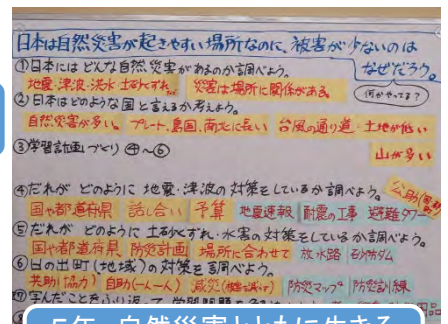 日本は自然災害が起きやすい場所なのに、被害が少ないのは
なぜだろう。
①日本にはどんな自然災害があるのか調べよう。
地震・津波・洪水・土砂くずれ 災害は場所に関係がある
何かやってる?
②日本はどのような国と言えるか考えよう。
自然災害が多い。 プレート、島国、南北に長い 台風の通り道・土地が低い
③学習計画づくり ④〜⑥
山が多い
④だれが どのように 地震・津波の 対策をしているか調べよう。
公助
国や都道府県 話し合い 予算 地震速報 耐震の工事 避難タワー
⑤だれが どのように 土砂くずれ・水害の対策をしているか調べよう。
国や都道府県 防災計画 場所に合わせて 放水路 砂防ダム
⑥日の出町(地域)の対策を調べよう。
共助(協力) 自助(一人一人) 減災 防災マップ 防災訓練
⑦学んだことをふり返って
5年 自然災害とともに生きる